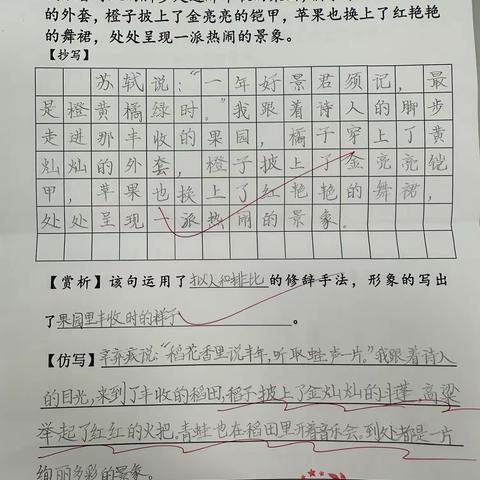 的外套，橙子披上了金亮亮的铠甲，苹果也换上了红艳艳
的舞裙，处处呈现一派热闹的景象。
【抄写】
苏轼说：“一年好景君须记，最
是橙黄橘绿时。”我跟着诗人的脚步
走进那丰收的果园，橘子穿上了黄
灿灿的外套，橙子披上了金亮亮铠
甲，苹果也换上了红艳艳的舞裙，
处处呈现一派热闹的景象。
【赏析】该句运用了拟人和排比的修辞手法，形象的写出
了果园里丰收时的样子。
【仿写】辛弃疾说：“稻花香里说丰年，听取蛙声一片。”我跟着诗人
的目光，来到了丰收的稻田，稻子披上了金灿灿的斗篷，高粱
举起了红红的火把。青蛙也在稻田里开着音乐会。到处都是一片
绚丽多彩的景象。